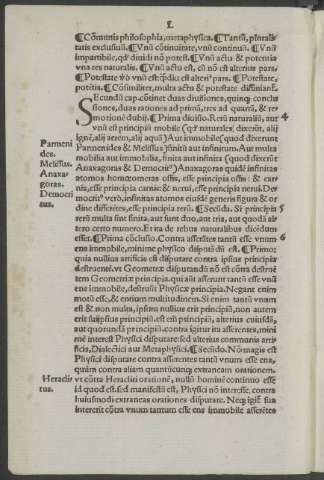 L
¶Cōmunis philosophia, metaphysica. ¶Tantū, pluralitatis exclusiuū. ¶Vnū cōtinuitate, vnū continuū. ¶Vnū
impartibile, qꝫ diuidi nō potest. ¶Vnū actu & potentia
vna res naturalis. ¶Vnū actu est, cū nō est alterius pars.
¶Potestate v̄o vnū est alteri⁹ pars. ¶Potestate,
potētia. ¶Cōsimiliter, multa actu & potestate
SEcundū cap. cōtinet duas diuisiones, quinqꝫ conclusiones, duas rationes ad primā, tres ad quartā, & remotionē dubij. ¶Prima diuisio. Rerū naturaliū, aut 4
vnū est principiū mobile (qꝫ naturales) dixerūt, alij
ignē, alij aerem, alij aquā) Aut immobile (quod dixerunt
Parmenides. Parmenides & Melissus) finitū aut infinitum. Aut multa
Melissus. mobilia aut immobilia, finita aut infinita (quod dixerūt
Anaxagoras. Anaxagoras & Democrit⁹) Anaxagoras quidē infinitas
atomos homœomeras ossis, esse principia ossis: & carnis, esse principia carnis: & nerui, esse principia nerui. Democrit⁹ verò, infinitas atomos eiusdē generis figura & ordine differētes, esse principia rerū. ¶Secūda. Si principia 5
Democritus. rerū multa sint finita, aut sunt duo, aut tria, aut quodā altero certo numero. Et ita de rebus naturalibus dicēdum
esset. ¶Prima cōclusio. Contra asserētes tantū esse vnum 6
ens immobile, minime physico disputandū est. ¶Primo:
quia nullius artificis est disputare contra ipsius principia
destruentē. vt Geometræ disputandū nō est cōtra destruētem Geometriæ principia. qui aūt asserunt tantū esse vnū
ens immobile, destruūt Physicæ principia. Negant enim
motū esse, & entium multitudinem. Si enim tantū vnum
est & non multa, ipsum nullius erit principiū, non autem
erit suiipsius principiū. est eni principiū, alterius cuiusdā,
aut quorundā principiū. contra igitur ita asserentes, minime interest Physici disputare: sed alterius communis artificis, Dialectici aut Metaphysici. ¶Secūdo. Nō magis est
Physici disputare contra asserentes tantū vnum esse ens,
quàm contra aliam quantūcunqꝫ extraneam orationem.
Heraclitus. vt cōtra Heracliti orationē, nullū hominē continuo esse
id quod est. sed manifestū est, Physici nō interesse, contra
huiusmodi extraneas orationes disputare. Neqꝫ igit̃ sua
intererit cōtra vnum tantum esse ens immobile asserētes